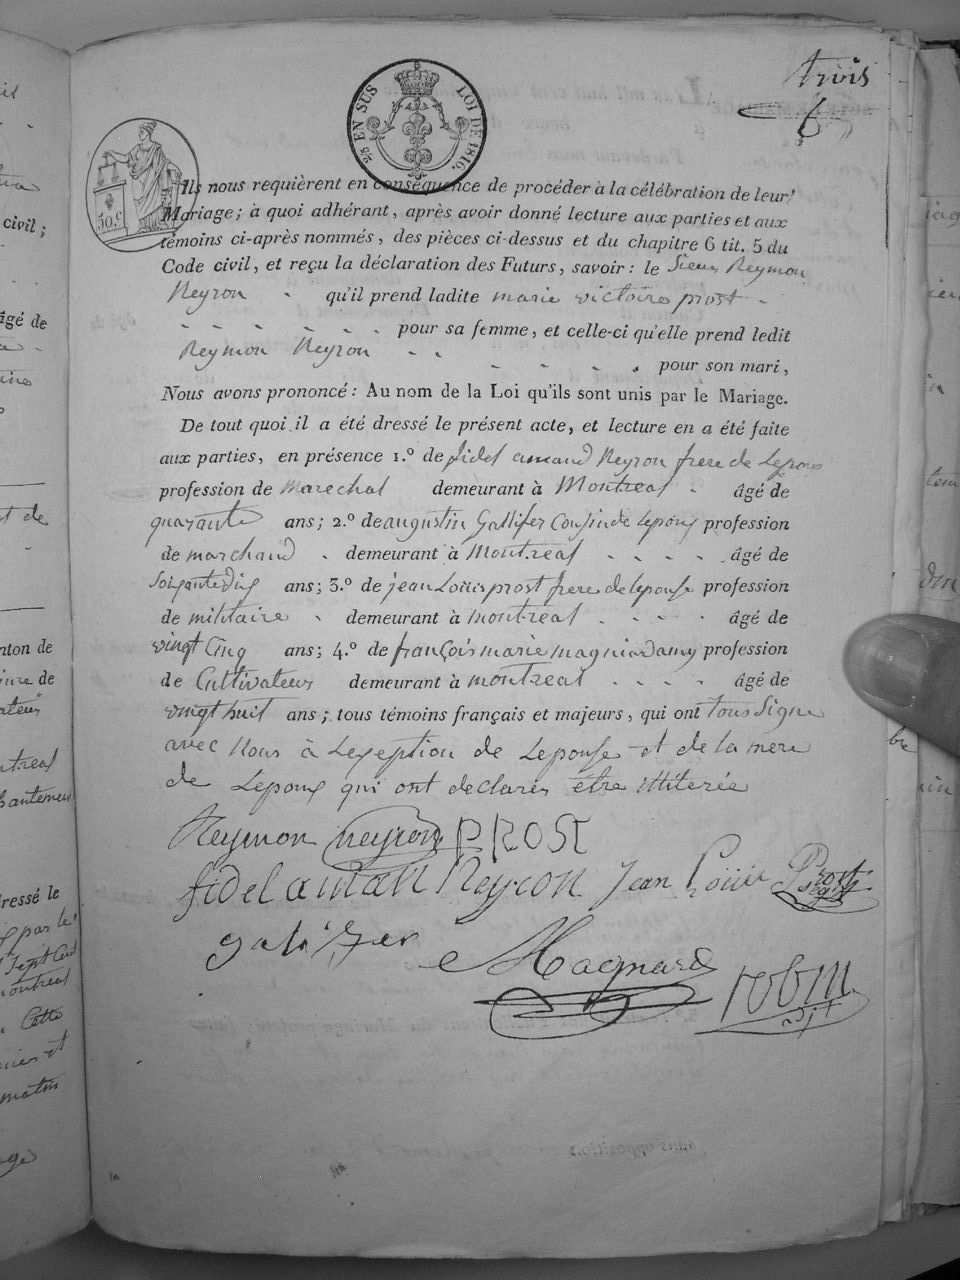 trois
6
25 EN SUS LOI DE 1816.
50 c
Ils nous requièrent en conséquence de procéder à la célébration de leur
Mariage; à quoi adhérant, après avoir donné lecture aux parties et aux
témoins ci-après nommés, des pièces ci-dessus et du chapitre 6 tit. 5 du
Code civil, et reçu la déclaration des Futurs, savoir: le Sieur Reymon
Neyron qu'il prend ladite marie victoire prost
pour sa femme, et celle-ci qu'elle prend ledit
Reymon Neyron pour son mari,
Nous avons prononcé: Au nom de la Loi qu'ils sont unis par le Mariage.
De tout quoi il a été dressé le présent acte, et lecture en a été faite
aux parties, en présence 1.º de fidel amand Neyron frere de Lepoux
profession de marechal demeurant à Montreal âgé de
quarante ans; 2.º de augustin Gallifer Cousin de Lepoux profession
de marchand demeurant à Montreal âgé de
Soixante dix ans; 3.º de jean Louis prost frere de lepouse profession
de militaire demeurant à montreal âgé de
vingt Cinq ans; 4.º de françois marie magnin damy profession
de Cultivateur demeurant à montreal âgé de
vingt huit ans; tous témoins français et majeurs, qui ont tous Signe
avec Nous à Lexeption de Lepouse et de la mere
de Lepoux qui ont declarés être illiterée
Reymon neyron PROST
fidel aman Neyron Jean Louis Prost
galifer Magnard robin
civil;
âgé de
nton de
ressé le